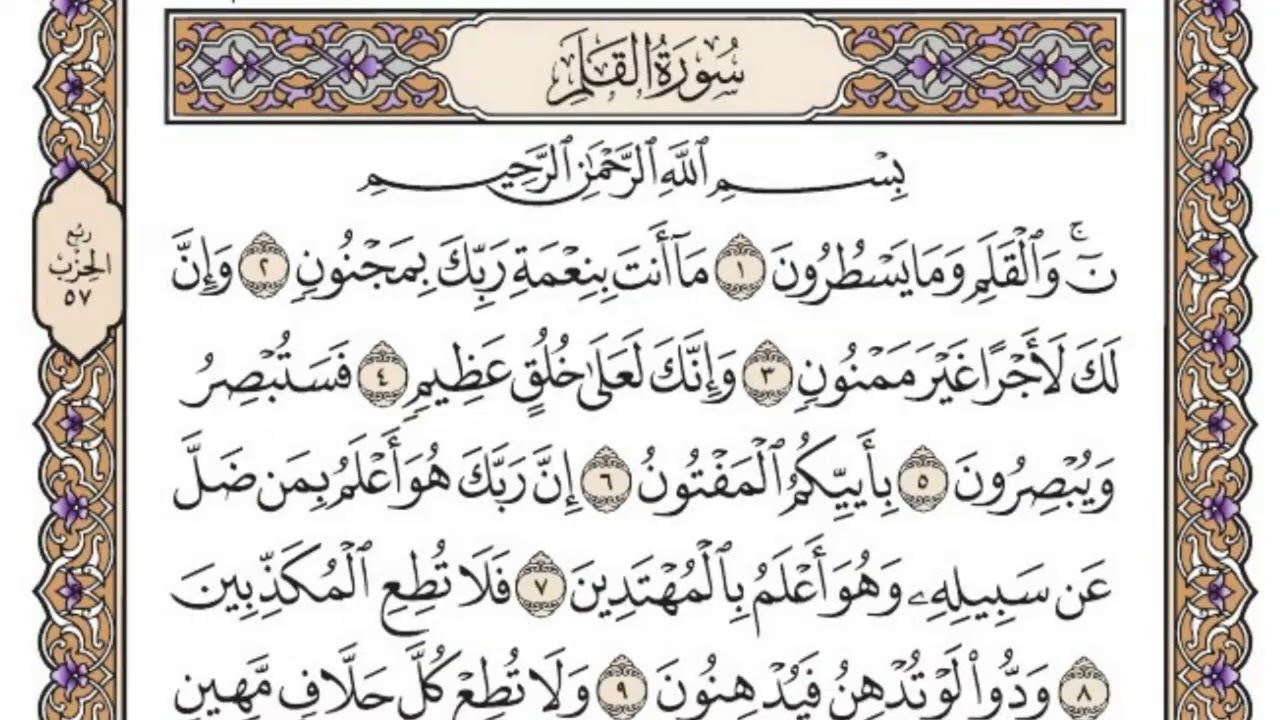 سُورَةُ القَلَمِ
بِسْمِ ٱللَّهِ ٱلرَّحْمَٰنِ ٱلرَّحِيمِ
نٓۚ وَٱلْقَلَمِ وَمَا يَسْطُرُونَ ١ مَآ أَنتَ بِنِعْمَةِ رَبِّكَ بِمَجْنُونٍ ٢ وَإِنَّ
لَكَ لَأَجْرًا غَيْرَ مَمْنُونٍ ٣ وَإِنَّكَ لَعَلَىٰ خُلُقٍ عَظِيمٍ ٤ فَسَتُبْصِرُ
وَيُبْصِرُونَ ٥ بِأَييِّكُمُ ٱلْمَفْتُونُ ٦ إِنَّ رَبَّكَ هُوَ أَعْلَمُ بِمَن ضَلَّ
عَن سَبِيلِهِۦ وَهُوَ أَعْلَمُ بِٱلْمُهْتَدِينَ ٧ فَلَا تُطِعِ ٱلْمُكَذِّبِينَ
٨ وَدُّوا۟ لَوْ تُدْهِنُ فَيُدْهِنُونَ ٩ وَلَا تُطِعْ كُلَّ حَلَّافٍ مَّهِينٍ
ربع
الحِزْب
٥٧